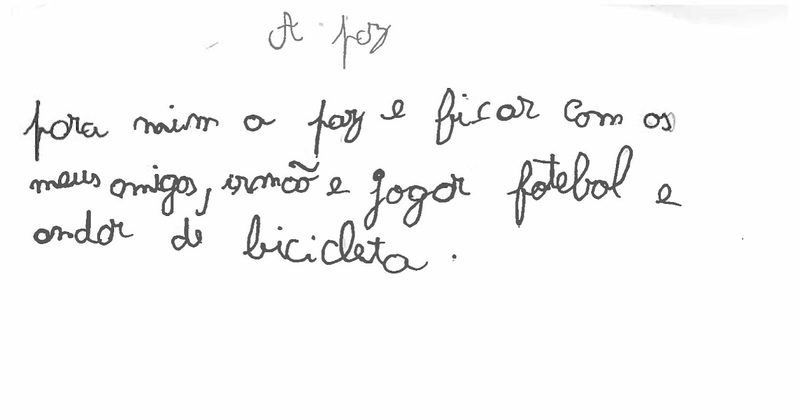 A paz
para mim a paz e ficar com os
meus amigos, irmão e jogar fotebol e
andar de bicicleta.